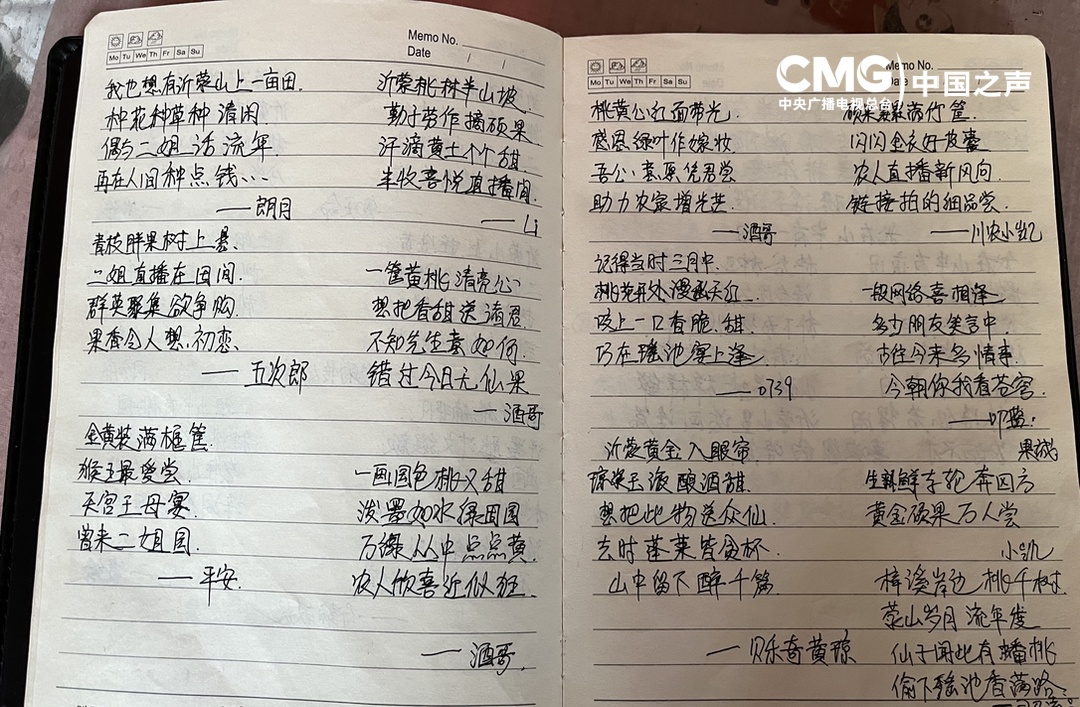 Memo No.
Date / /
Mo Tu We Th Fr Sa Su
我也想有沂蒙山上一亩田.
种花种草种清闲
偶与二姐话流年.
再在人间种点钱…
——朗月
青枝胖果树上悬、
二姐直播在田间.
群英聚集欲争购
果香令人想初恋、
——五次郎
金黄装满框筐.
猴王最爱尝.
天宫王母宴.
曾来二姐园.
——平安.
沂蒙桃林半山坡.
勤于劳作摘硕果.
汗滴黄土个个甜.
丰收喜悦直播间.
——Li
一筐黄桃清亮心
想把香甜送诸君.
不知先生意如何.
错过今日无仙果
——酒哥
一画国色桃又甜
泼墨如水绿田园
万绿丛中点点黄.
农人欣喜近似狂.
——酒哥.
CMG 中国之声
中央广播电视总台
Memo No.
Date
Mo Tu We Th Fr Sa Su
桃黄公红面带光.
感恩绿叶作嫁妆
助力农家增光芒.
——酒哥
记得当时三月中.
咬上一口香脆.甜
巧在瑶池宴上逢
——0739
沂蒙黄金入眼帘
琼浆玉液酿酒甜.
想把此物送众仙.
去时蓬莱皆贪杯.
山中留下醉千篇
——贝乐奇黄琼
满竹筐.
闪闪金衣好皮囊
农人直播新风向.
链接拍的细品尝.
——川农小凯
一段网络喜相逢
多少朋友笑言中.
古往今来多情事.
今朝你我看苍穹.
果城
生新鲜车轮奔四方
黄金硕果万人尝
小凯
梓溪岸边桃千树.
蒙山岁月流年度
仙子闻此有蟠桃
偷下瑶池香满路.